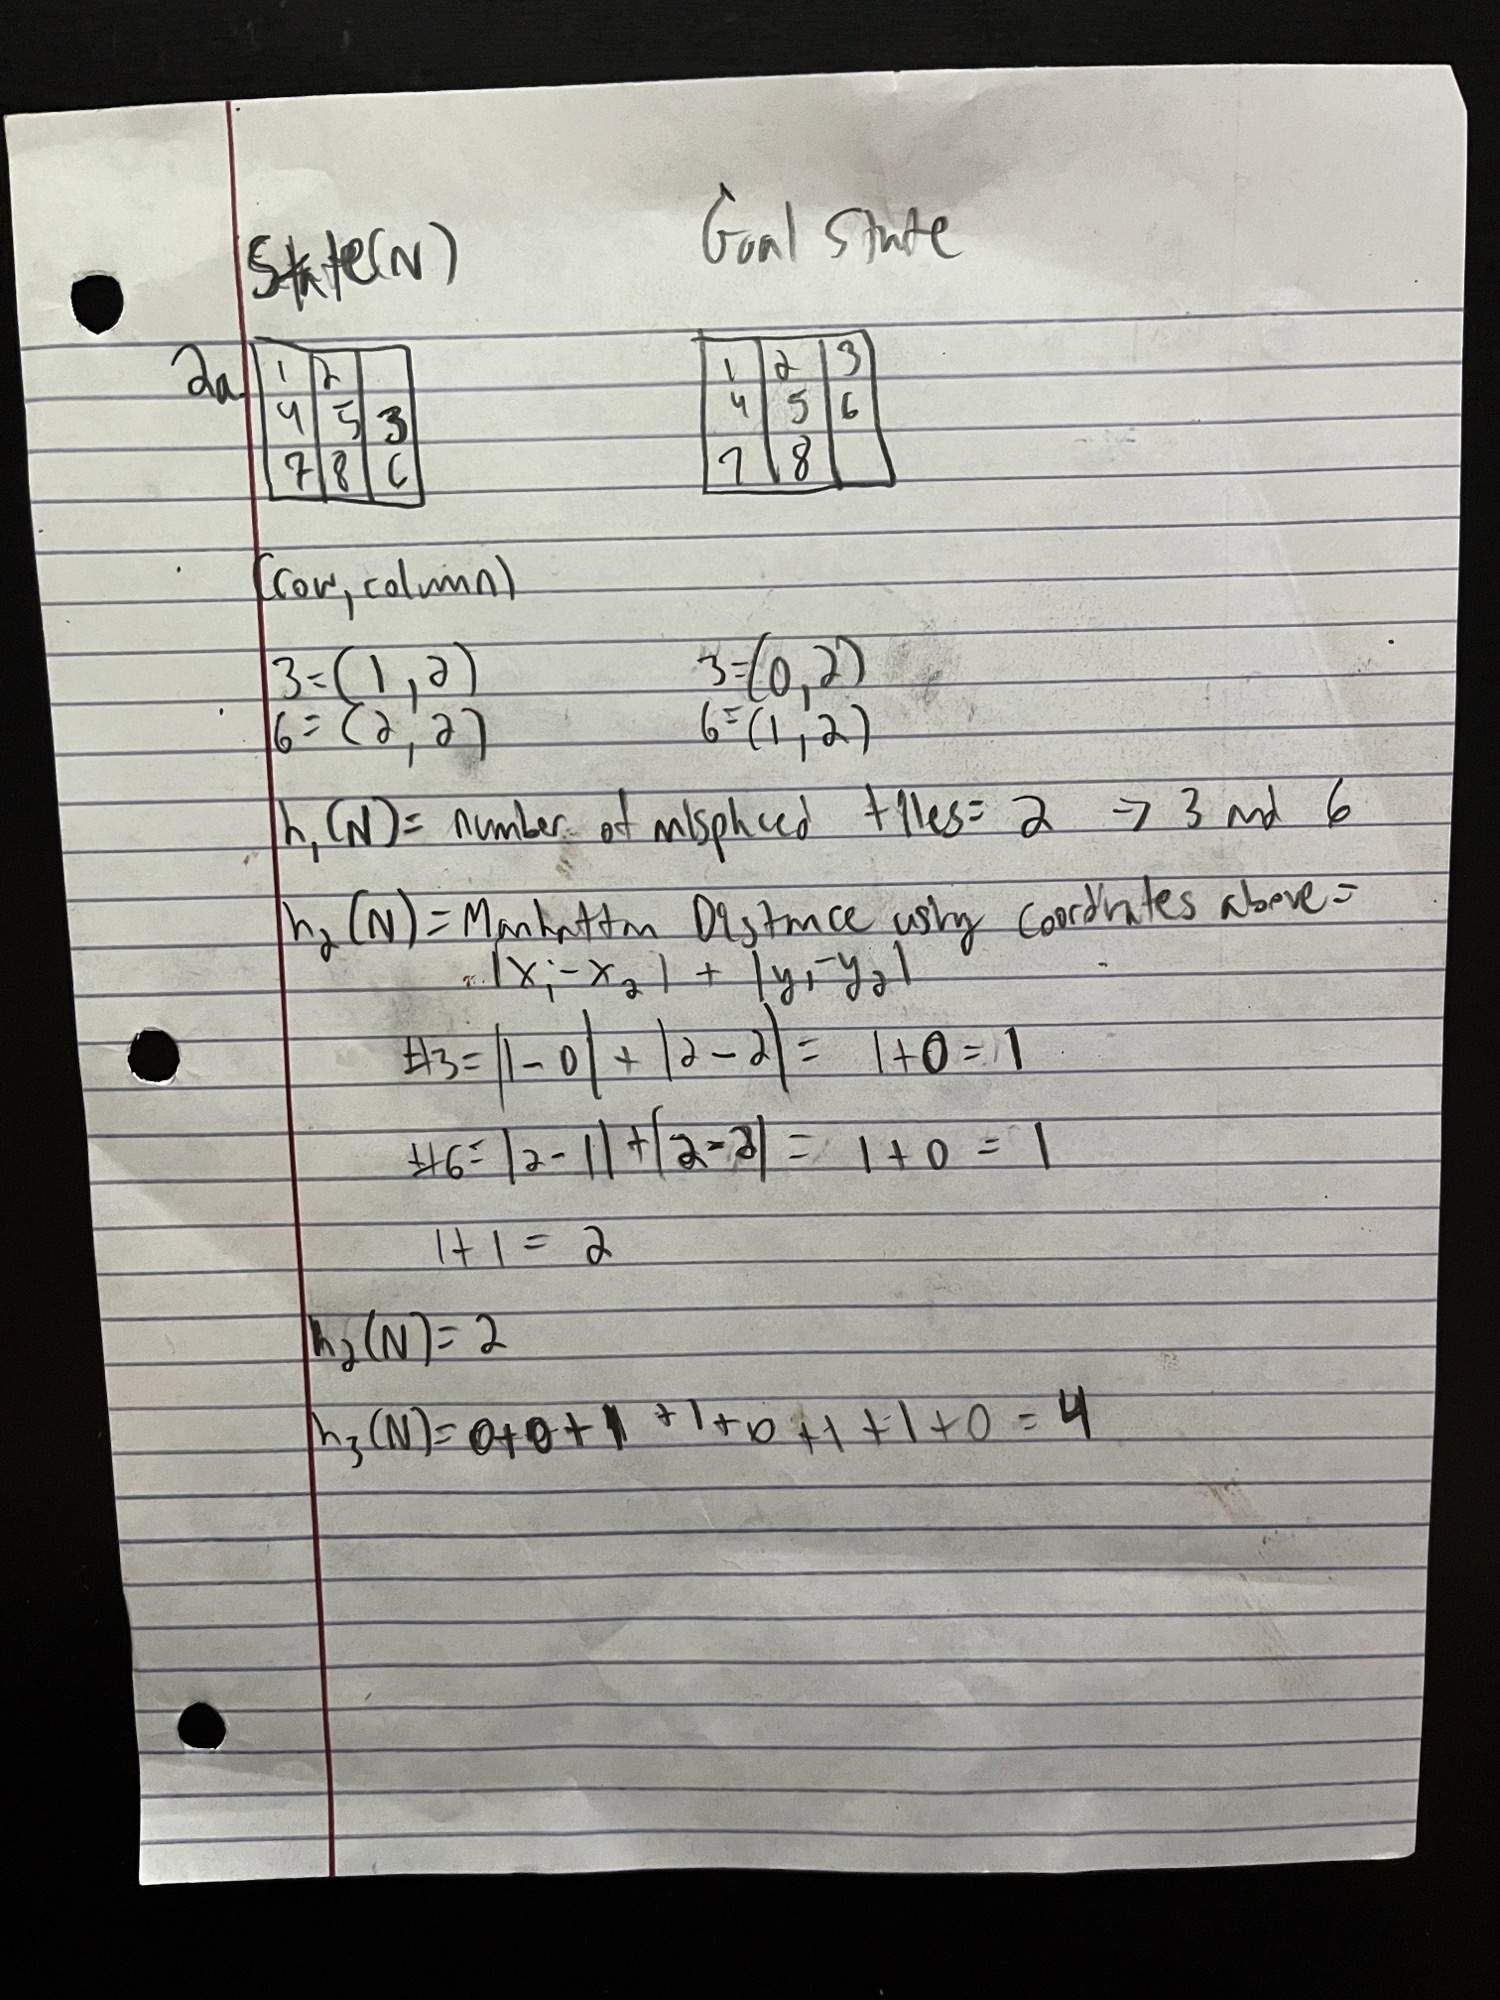 State(N) Goal State
2a 1 2 1 2 3
4 5 3 4 5 6
7 8 6 7 8
(row, column)
3=(1,2) 3=(0,2)
6=(2,2) 6=(1,2)
h₁(N)= number of misplaced tiles= 2 → 3 and 6
h₂(N)= Manhattan Distance using coordinates above=
|x₁-x₂| + |y₁-y₂|
#3= |1-0| + |2-2| = 1+0=1
#6= |2-1| + |2-2| = 1+0 = 1
1+1 = 2
h₂(N)= 2
h₃(N)= 0+0+1+1+0+1+1+0 = 4